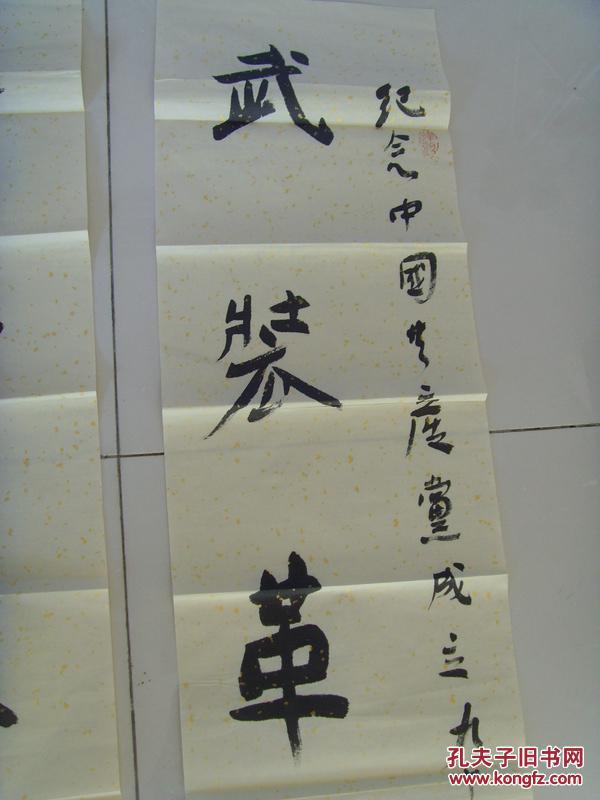 紀念中國共產黨成立九
武裝革
孔夫子旧书网
www.kongfz.com